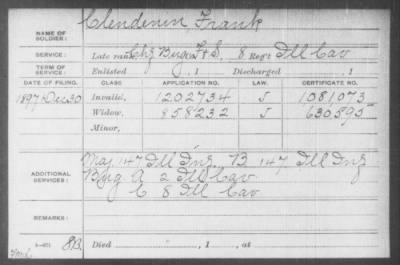 NAME OF SOLDIER: Clendenin, Frank
SERVICE: Late rank, Chf Bugler F&S, 8 Reg't Ill Cav
TERM OF SERVICE: Enlisted , 1 Discharged , 1
DATE OF FILING. CLASS. APPLICATION NO. LAW. CERTIFICATE NO.
1897 Dec 30 Invalid, 1202734 J 1081073
Widow, 858232 J 630595
Minor,
ADDITIONAL SERVICES: Maj 147 Ill Inf. B 147 Ill Inf
Bug A 2 Ill Cav
C 8 Ill Cav
REMARKS:
Died , 1 , at